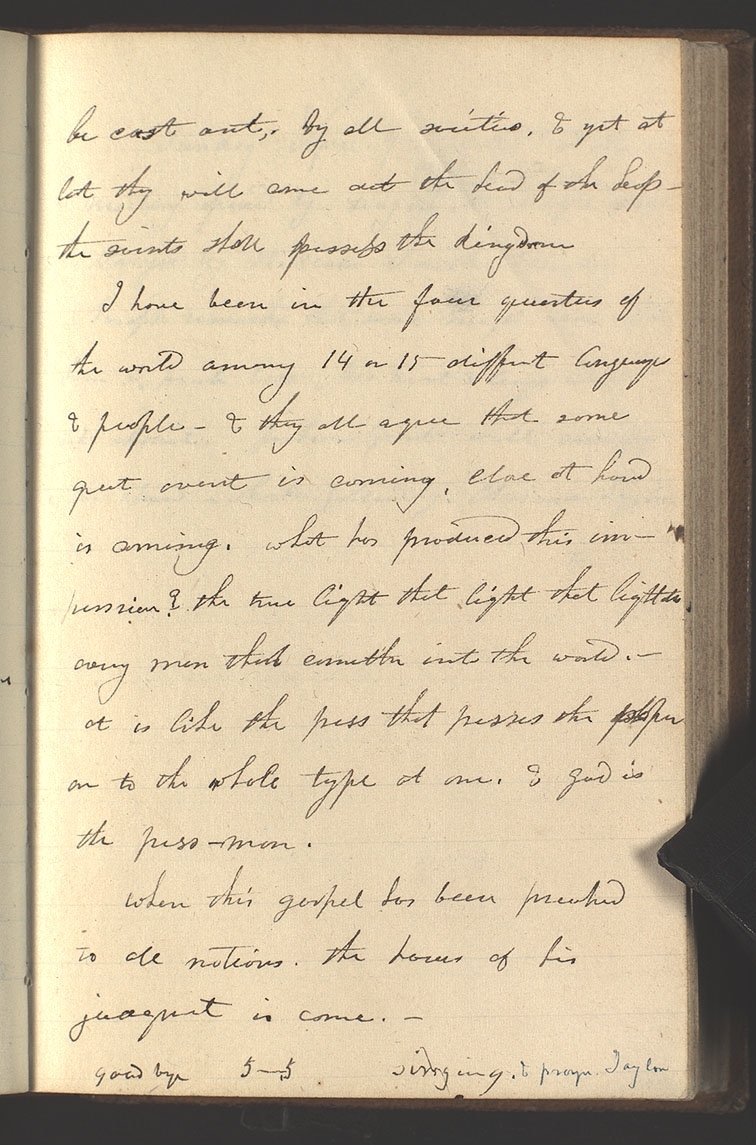 be cast out, by all societies, & yet at
last they will come out the head of the heap –
the saints shall possess the kingdom
I have been in the four quarters of
the world among 14 or 15 different languages
& people – & they all agree that some
great event is coming, close at hand
is coming. what has produced this im–
pression? the true light that light that lighteth
every man that cometh into the world. –
it is like the press that presses the paper
on to the whole type at one. & god is
the press-man.
when this gospel has been preached
to all nations. the hour of his
judgment is come. –
good bye 5–5 singing. & prayr. Taylor